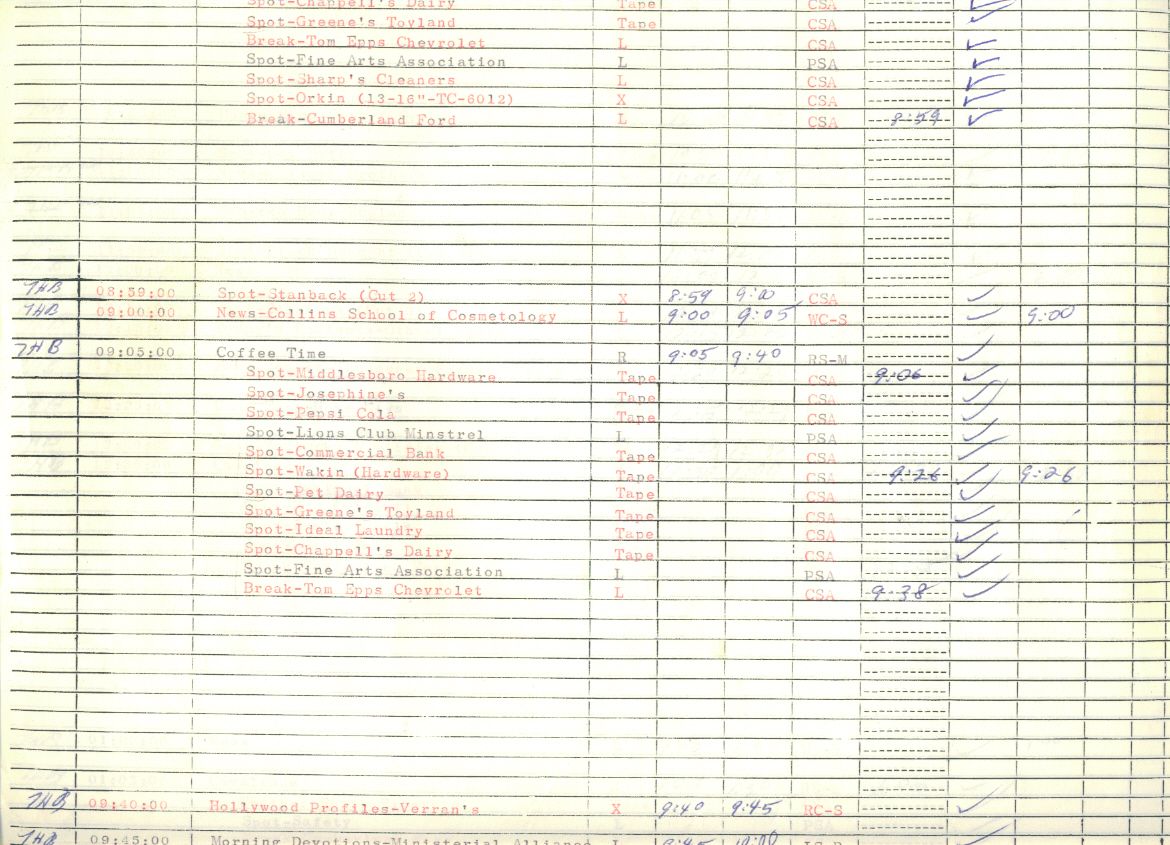 Spot-Chappell's Dairy Tape CSA
Spot-Greene's Toyland Tape CSA
Break-Tom Epps Chevrolet L CSA
Spot-Fine Arts Association L PSA
Spot-Sharp's Cleaners L CSA
Spot-Orkin (13-16"-TC-6012) X CSA
Break-Cumberland Ford L CSA 8:59
THB 08:59:00 Spot-Stanback (Cut 2) X 8:59 9:00 CSA
THB 09:00:00 News-Collins School of Cosmetology L 9:00 9:05 WC-S 9:00
THB 09:05:00 Coffee Time R 9:05 9:40 RS-M
Spot-Middlesboro Hardware Tape CSA 9:06
Spot-Josephine's Tape CSA
Spot-Pepsi Cola Tape CSA
Spot-Lions Club Minstrel L PSA
Spot-Commercial Bank Tape CSA
Spot-Wakin (Hardware) Tape CSA 9:26 9:26
Spot-Pet Dairy Tape CSA
Spot-Greene's Toyland Tape CSA
Spot-Ideal Laundry Tape CSA
Spot-Chappell's Dairy Tape CSA
Spot-Fine Arts Association L PSA
Break-Tom Epps Chevrolet L CSA 9:38
THB 09:40:00 Hollywood Profiles-Verran's X 9:40 9:45 RC-S
THB 09:45:00 Morning Devotions-Ministerial Alliance L 9:45 10:00